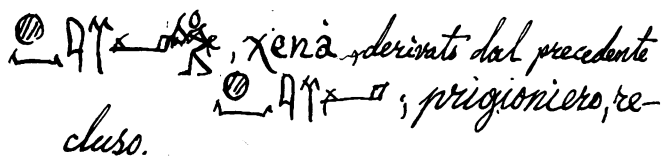 , χenà, derivato dal precedente
; prigioniero, re-
cluso.